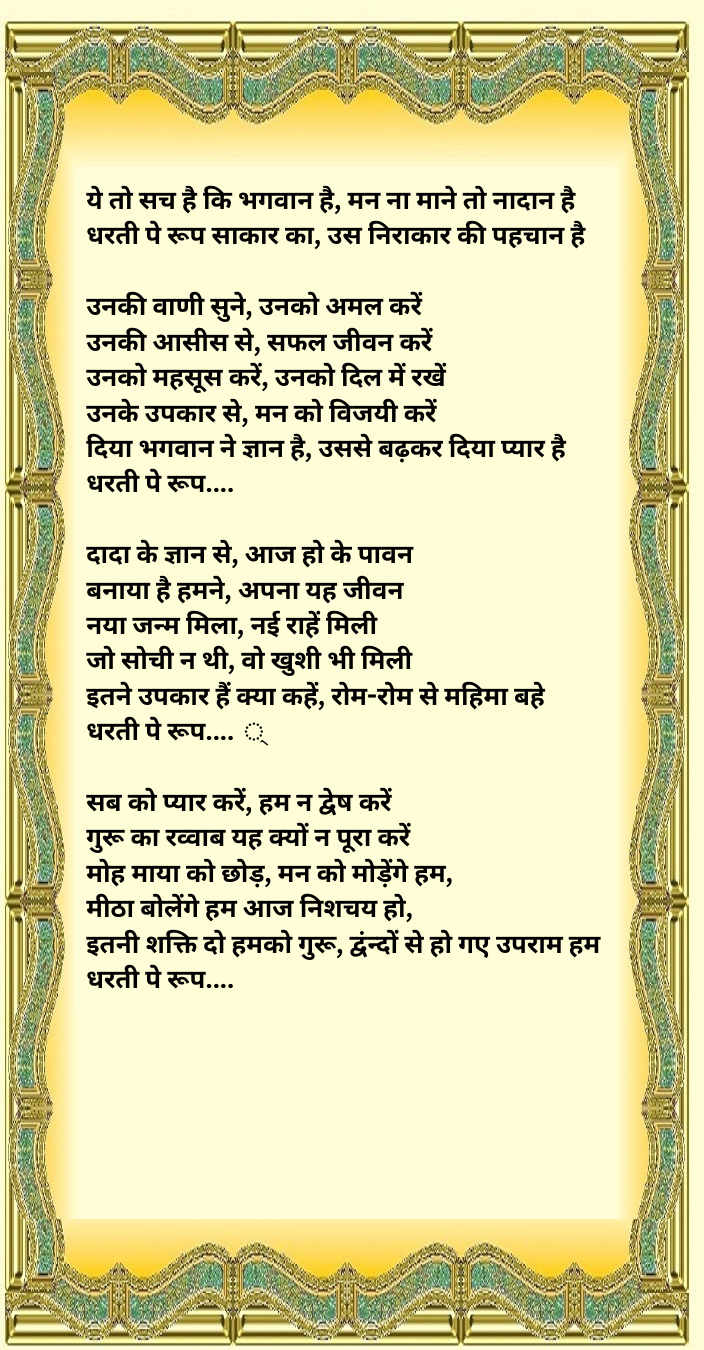 ये तो सच है कि भगवान है, मन ना माने तो नादान है
धरती पे रूप साकार का, उस निराकार की पहचान है
उनकी वाणी सुने, उनको अमल करें
उनकी आसीस से, सफल जीवन करें
उनको महसूस करें, उनको दिल में रखें
उनके उपकार से, मन को विजयी करें
दिया भगवान ने ज्ञान है, उससे बढ़कर दिया प्यार है
धरती पे रूप....
दादा के ज्ञान से, आज हो के पावन
बनाया है हमने, अपना यह जीवन
नया जन्म मिला, नई राहें मिली
जो सोची न थी, वो खुशी भी मिली
इतने उपकार हैं क्या कहें, रोम-रोम से महिमा बहे
धरती पे रूप.... ्
सब को प्यार करें, हम न द्वेष करें
गुरू का रव्वाब यह क्यों न पूरा करें
मोह माया को छोड़, मन को मोड़ेंगे हम,
मीठा बोलेंगे हम आज निशचय हो,
इतनी शक्ति दो हमको गुरू, द्वंन्दों से हो गए उपराम हम
धरती पे रूप....